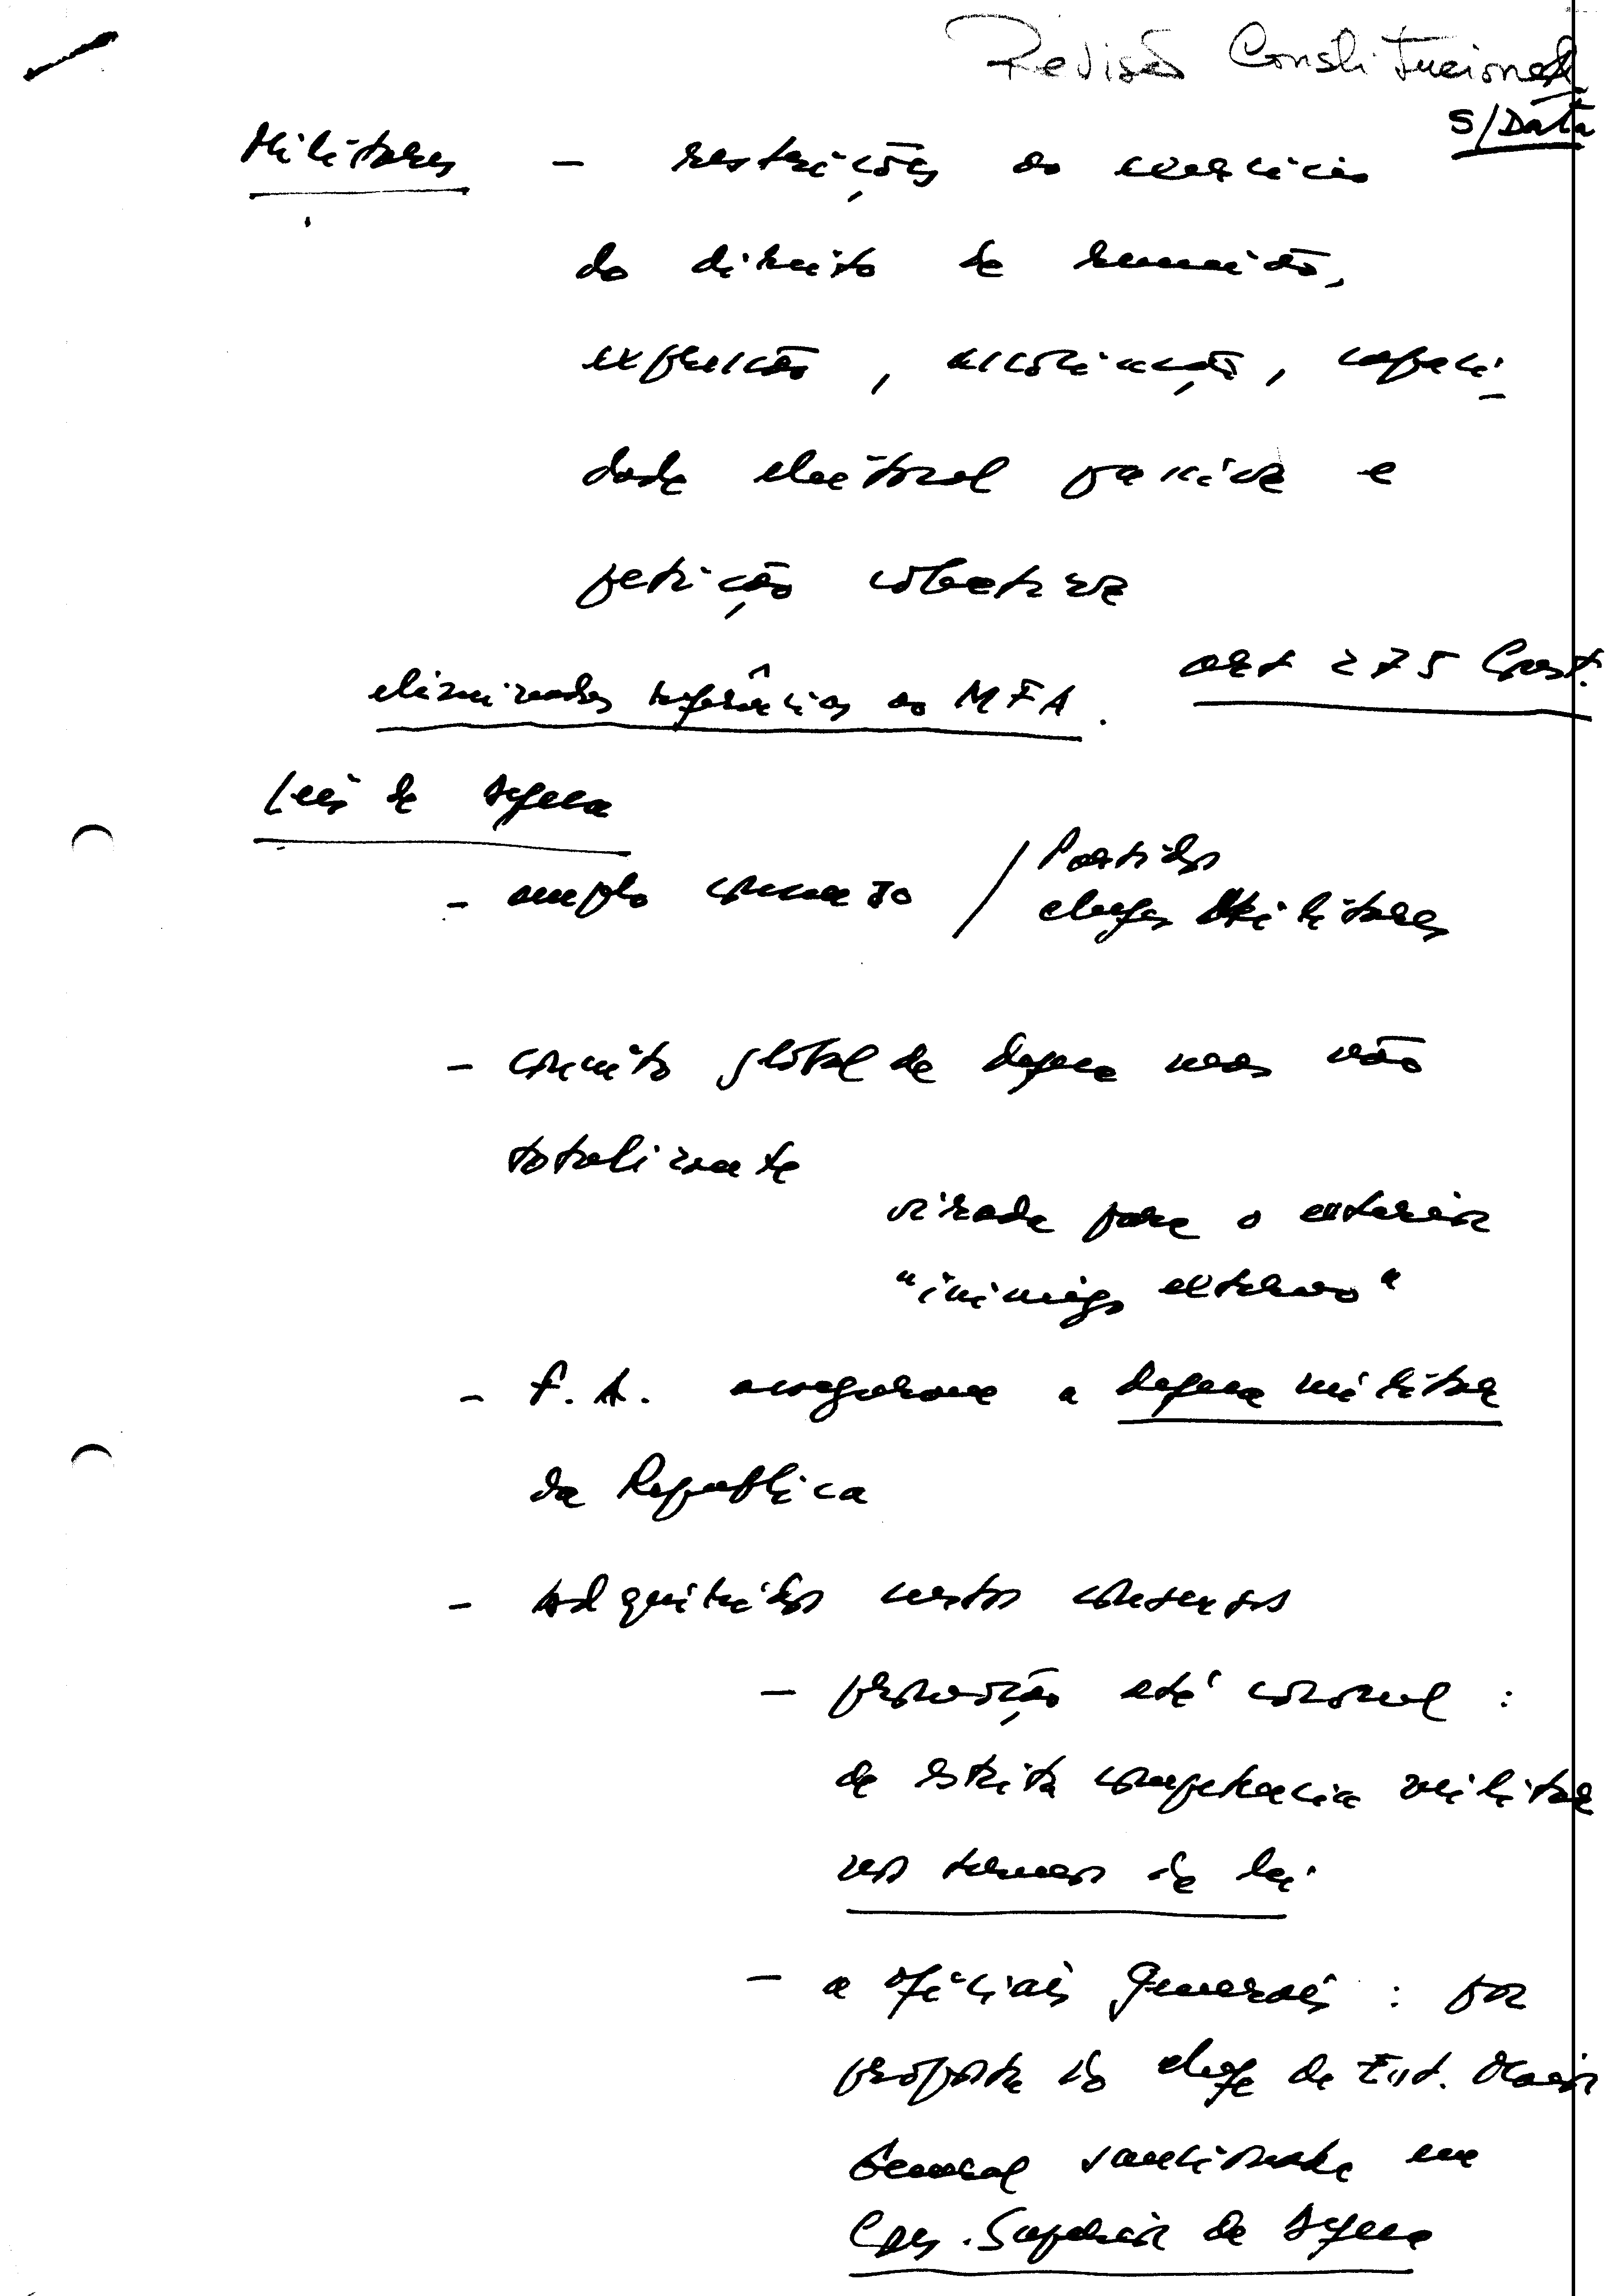 Revisão Constitucional
S/Data
Militares - restrições ao exercício
do direito de reunião,
expressão, associação, capaci-
dade eleitoral passiva e
petição colectiva
art 275 Const.
eliminadas referências ao MFA.
Leis de Defesa
- amplo consenso / Partidos
chefes Militares
- conceito global de defesa mas não
totalizante
virada para o exterior
"inimigo externo"
- F. A. asseguram a defesa militar
da Republica
- Adquiridos certos consensos
- promoção até coronel :
de estrita competencia militar
nos termos da lei
- a oficiais Generais : por
proposta do chefe de Est. Maior
General sancionada em
Cons. Superior de Defesa